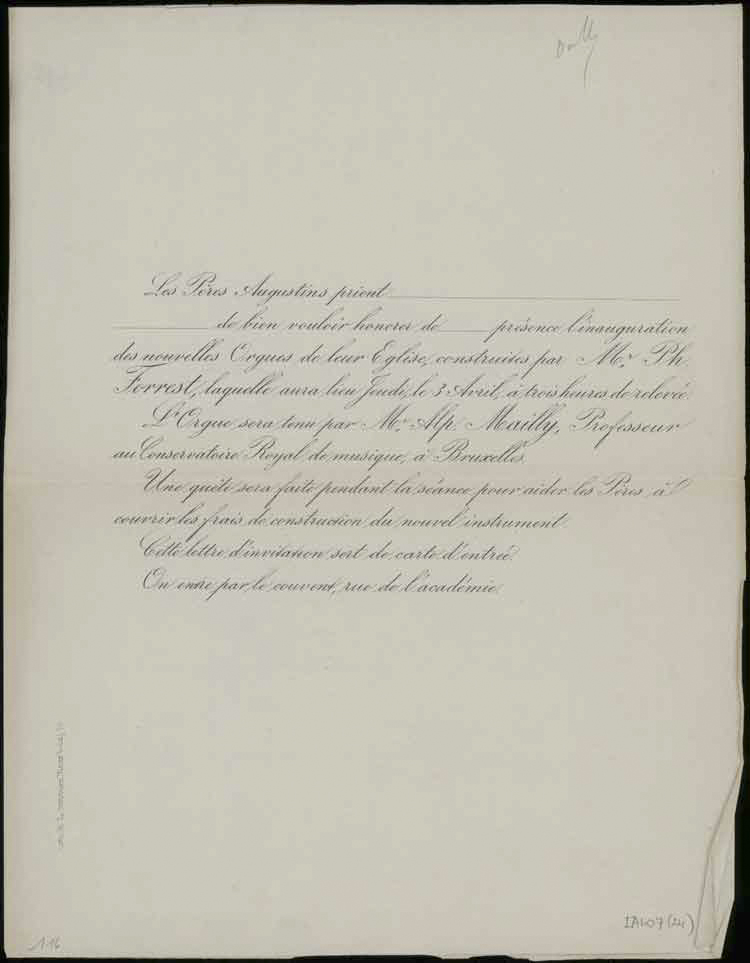 Les Pères Augustins prient
de bien vouloir honorer de présence l'inauguration
des nouvelles Orgues de leur Eglise, construites par Mr. Ph.
Forrest, laquelle aura lieu Jeudi, le 3 Avril, à trois heures de relevée.
L'Orgue sera tenu par Mr. Alp. Mailly, Professeur
au Conservatoire Royal de musique, à Bruxelles.
Une quête sera faite pendant la séance pour aider les Pères à
couvrir les frais de construction du nouvel instrument.
Cette lettre d'invitation sert de carte d'entrée.
On entre par le couvent, rue de l'académie.
IA407(24)
116